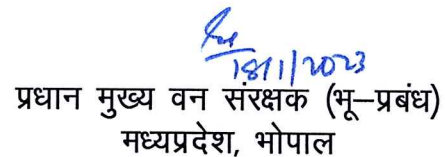 18/1/2023
प्रधान मुख्य वन संरक्षक (भू–प्रबंध)
मध्यप्रदेश, भोपाल